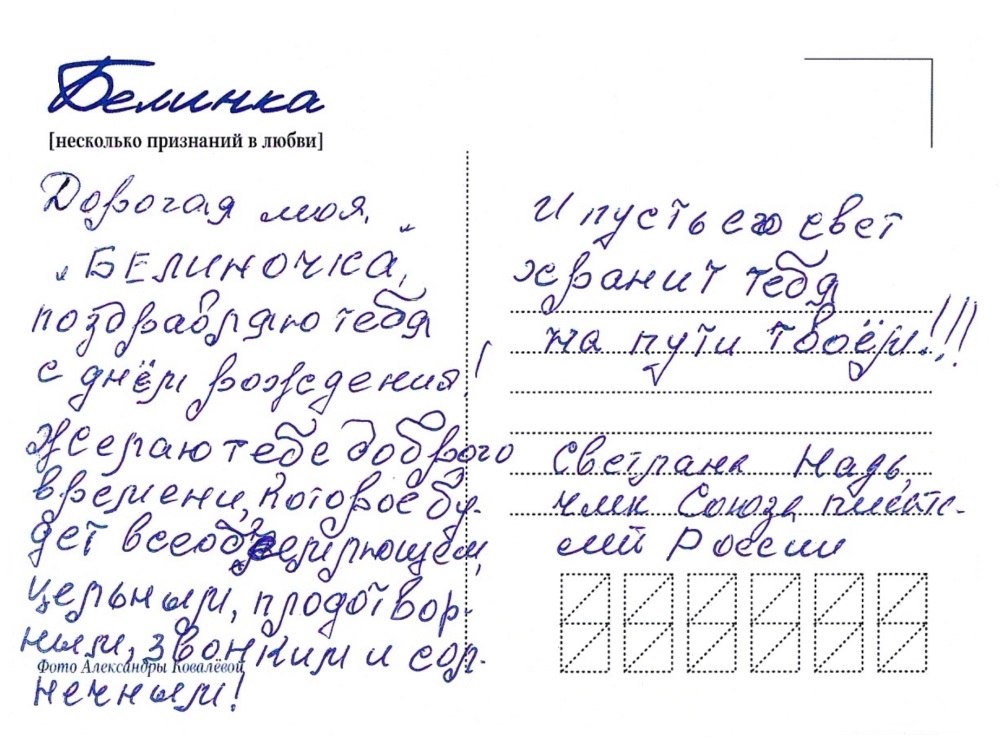 Белинка
[несколько признаний в любви]
Дорогая моя
„БЕЛИНОЧКА“,
поздравляю тебя
с днём рождения!
Желаю тебе доброго
времени, которое бу-
дет всеобъемлющем,
цельным, плодотвор-
ным, звонким и сол-
нечным!
Фото Александры Ковалёвой
И пусть его свет
хранит тебя
на пути твоём!!!
Светлана Надь,
член Союза писате-
лей России